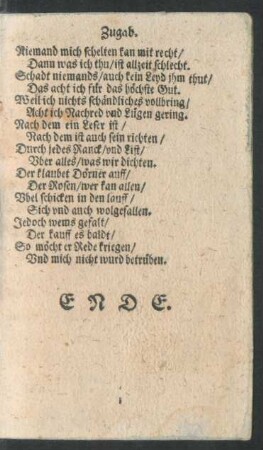 Zugab.
Niemand mich schelten kan mit recht/
Dann was ich thu/ist allzeit schlecht.
Schadt niemands/auch kein Leyd jhm thut/
Das acht ich für das höchste Gut.
Weil ich nichts schändliches vollbring/
Acht ich Nachred vnd Lügen gering.
Nach dem ein Leser ist/
Nach dem ist auch sein richten/
Durch jedes Ranck/vnd List/
Vber alles/was wir dichten.
Der klaubet Dörner auff/
Der Rosen/wer kan allen/
Vbel schicken in den lauff/
Sich vnd auch wolgefallen.
Jedoch wems gefalt/
Der kauff es baldt/
So möcht er Rede kriegen/
Vnd mich nicht wurd betrüben.
ENDE.